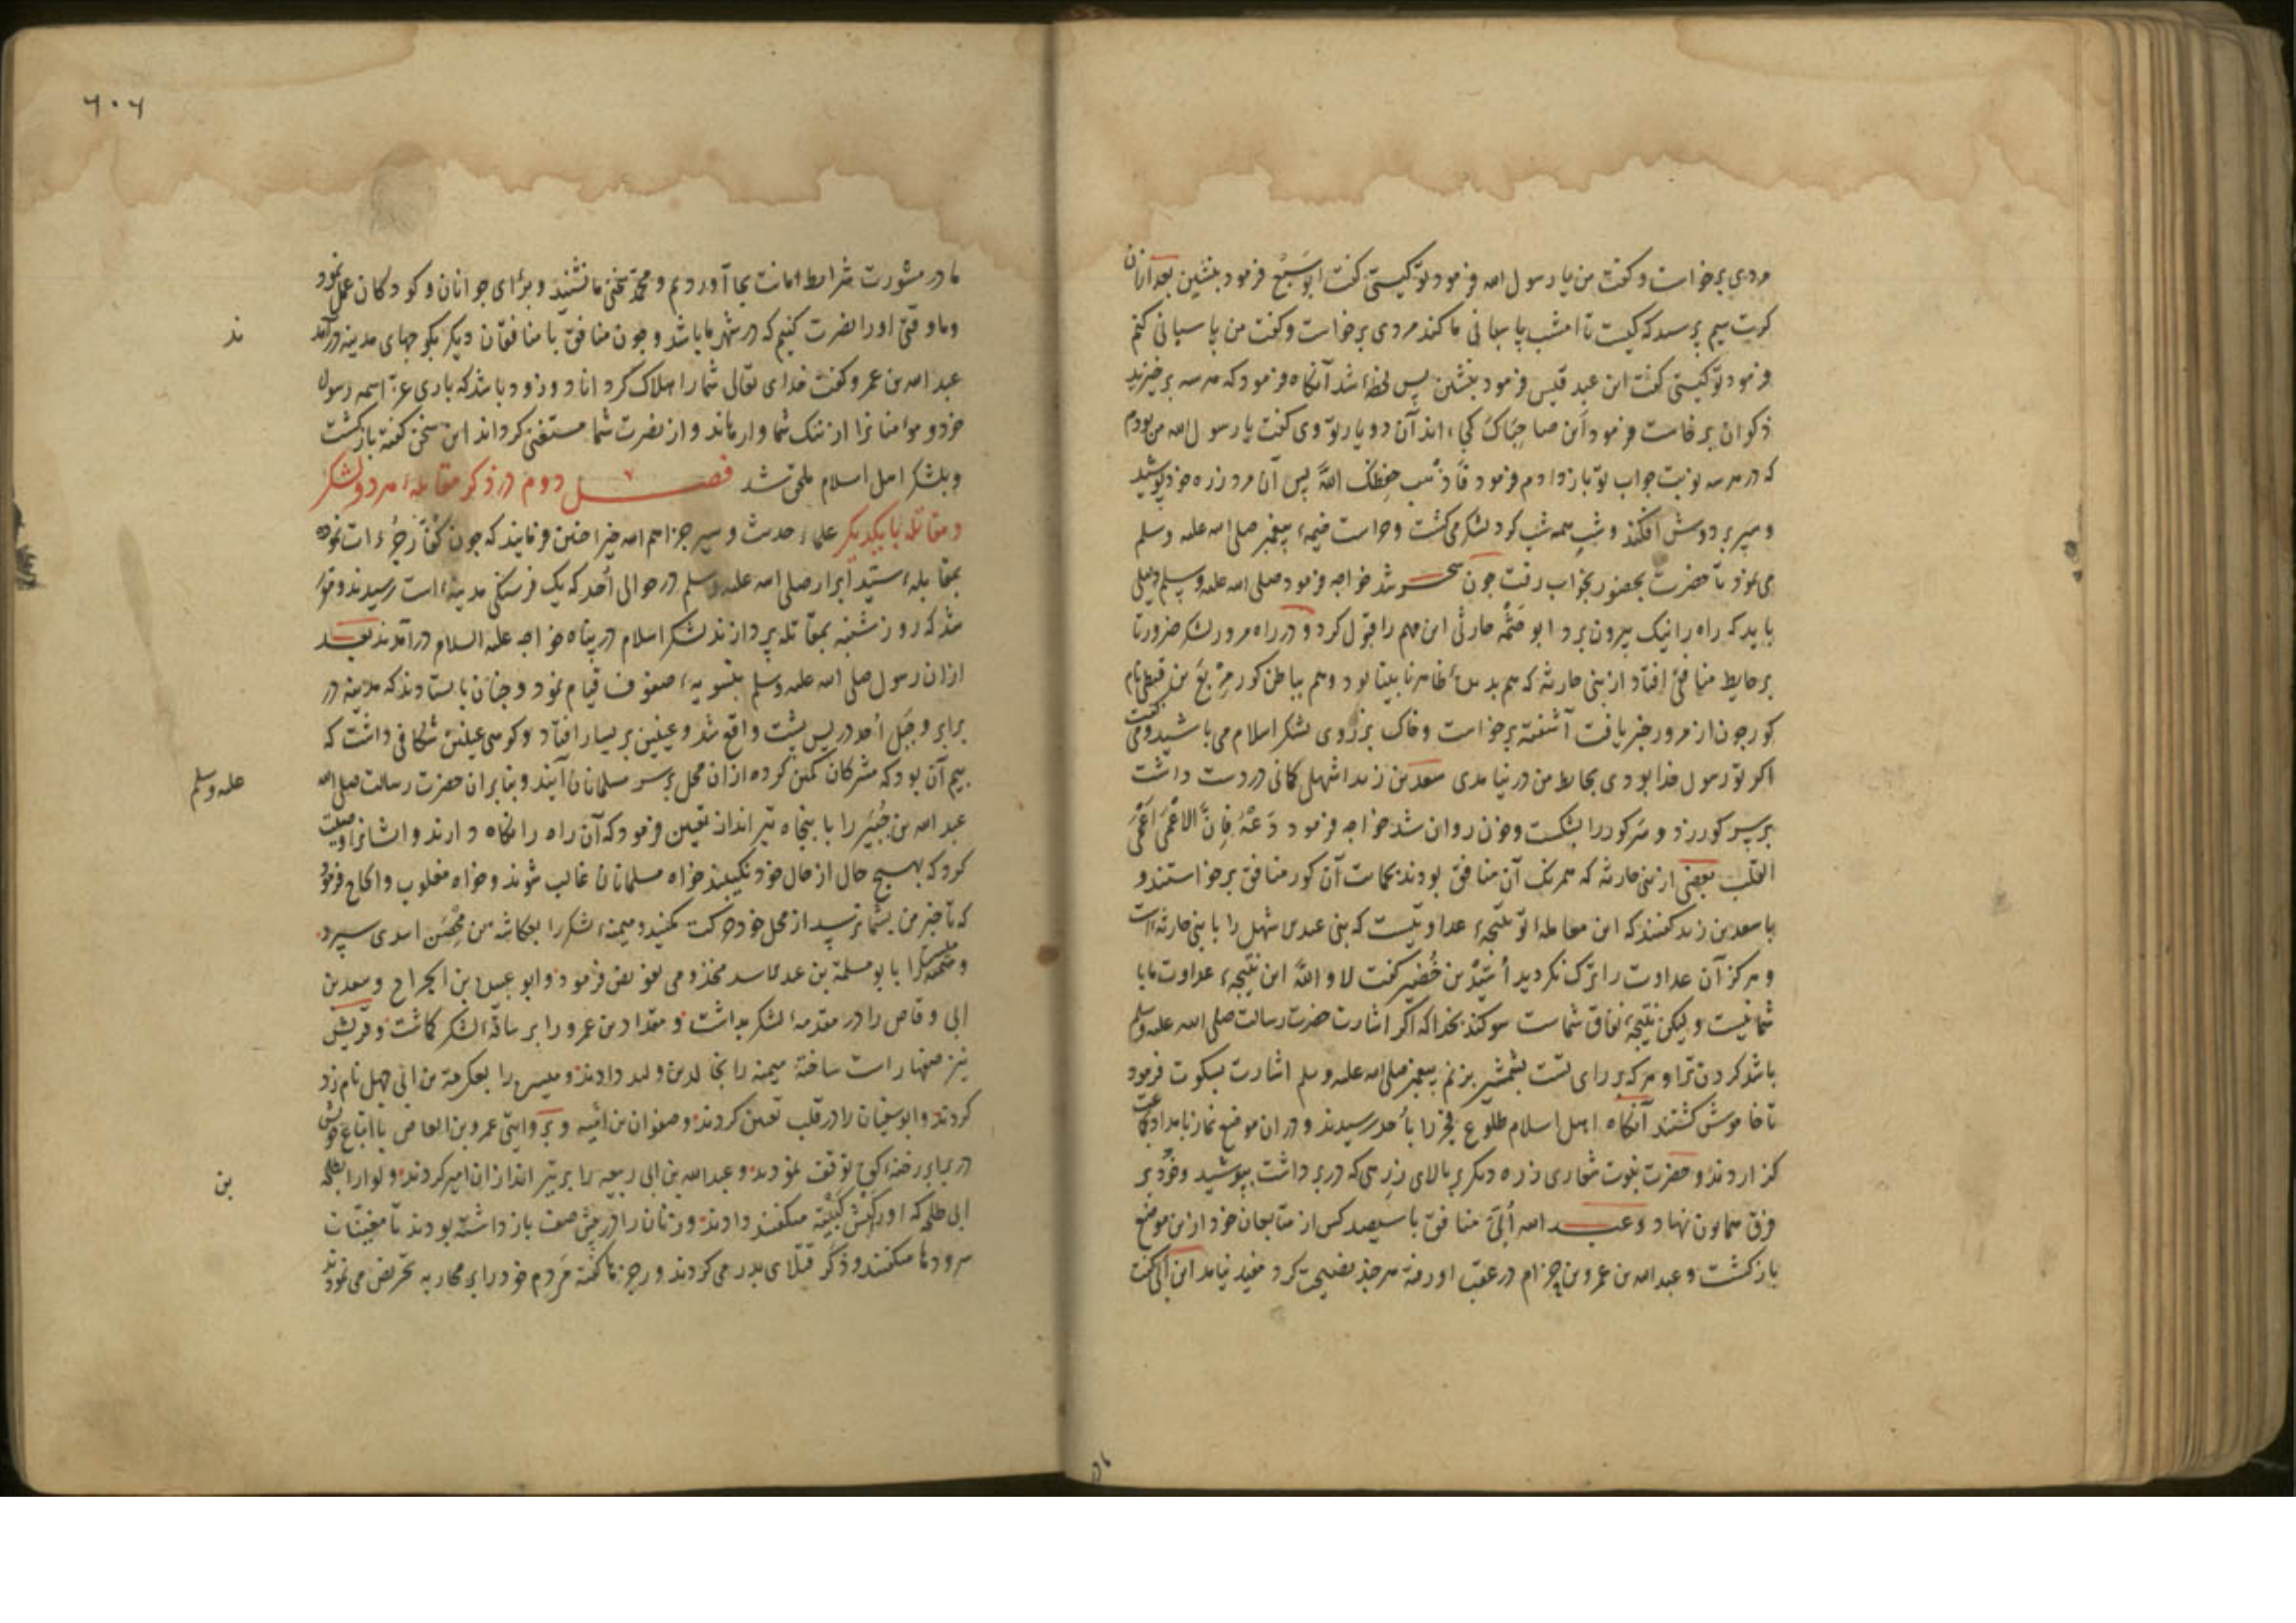 مردی برخواست و کفت من یا رسول الله فرمود تو کیستی کفت ابو سَبُع فرمود بنشین بعد ازان
کرت سیم پرسد که کیست تا امشب پاسبانی ما کند مردی برخواست و کفت من پاسبانی کنم
فرمود تو کیستی کفت ابن عبد قیس فرمود بنشین پس لحظهٔ شد آنکاه فرمود که هر سه برخیزید
ذکوان برخاست فرمود اَین صاحِبَاکَ کجااند آن دو یار تو وی کفت یا رسول الله من بودم
که در هر سه نوبت جواب تو باز دادم فرمود فَاذْهَب حفظک اللهُ پس آن مرد زره خود پوشید
و سپر بر دوش افکند و شب همه شب کرد لشکر می کشت و حراست خیمهٔ پیغمبر صلی الله علیه وسلم
می نمود تا حضرت بحضور بخواب رفت چون سحر شد خواجه فرمود صلی الله علیه وسلم دلیلی
باید که راه را نیک بیرون برد ابو حَثْمه حارثی این مهم را قبول کرد و در راه مرور لشکر ضرورتا
بر حایط منافقی افتاد از بنی حارثه که هم بدیدهٔ ظاهر نابینا بود و هم بباطن کور مِرْبَعْ بن قیظی نام
کور چون از مرور خبر یافت آشفته برخواست و خاک بر روی لشکر اسلام می پاشید و می کفت
اکر تو رسول خدا بودی بحایط من در نیامدی سعد بن زید اشهلی کمانی در دست داشت
بر سر کور زد و سَر کور را بشکست و خون روان شد خواجه فرمود دَعْهُ فَاِنَّ الاَعْمَی اَعْمَی
القلب بعضی از بنی حارثه که همرنک آن منافق بودند بحمایت آن کور منافق برخواستند و
با سعد بن زید کفتند که این معاملهٔ تو نتیجهٔ عداوتیست که بنی عبد اشهل را با بنی حارثه است
و هرکز آن عداوت را ترک نکردید اُسَیْدُ بن حُضَیر کفت لا و اللهِ این نتیجهٔ عداوت ما با
شما نیست و لیکن نتیجهٔ نفاق شماست سوکند بخدا که اکر اشارت حضرت رسالت صلی الله علیه وسلم
باشد کردن ترا و هر که بر رای تست بشمشیر بزنم پیغمبر صلی الله علیه وسلم اشارت بسکوت فرمود
تا خاموش کشتند آنکاه اهل اسلام طلوع فجر را باُحد رسیدند و در ان موضع نماز بامداد بجماعت
کزاردند و حضرت نبوت شعاری زره دیکر بر بالای زرهی که در بر داشت بپوشید و خُود بر
فرق همایون نهاد و عبد الله اُبَیّ منافق با سیصد کس از متابعان خود ازین موضع
باز کشت و عبد الله بن عمرو بن حِزام در عقب او رفته هر چند نصیحت کرد مفید نیامد ابن اُبَی کفت
۶۰۶
ما در مشورت شرایط امانت بجا آوردیم و محمد سخن ما نشنید و برٲی جوانان و کودکان عمل نمود
و ما وقتی او را نصرت کنیم که در شهر ما باشد و چون منافق با منافقان دیکر بکوچهای مدینه درآمد
ند
عبد الله بن عمرو کفت خدای تعالی شما را هلاک کرداناد و زود باشد که باری عزّ اسمه رسول
خود و مؤمنانرا از ننک شما وارهاند و از نصرت شما مستغنی کرداند این سخن کفته باز کشت
و بلشکر اهل اسلام ملحق شد فصل دوم در ذکر مقابلهٔ هر دو لشکر
و مقاتله با یکدیکر علمٲ حدیث و سیر جزاهم الله خیرا چنین فرمایند که چون کُفّار جُرءات نموده
بمقابلهٔ سیّد ابرار صلی الله علیه وسلم در حوالی اُحد که یک فرسنکی مدینه است رسیدند و مقرر
شد که روز شنبه بمقاتله پردازند لشکر اسلام در پناه خواجه علیه السلام درآمدند بعد
ازان رسول صلی الله علیه وسلم بتسویهٔ صفوف قیام نمود و چنان بایستادند که مدینه در
برابر و جَبَل اُحد در پس پشت واقع شد و عینین بر یسار افتاد و کوه عینین شکافی داشت که
بیم آن بود که مشرکان کمین کرده ازان محل بر سر مسلمانان آیند و بنابران حضرت رسالت صلی الله
علیه وسلم
عبد الله بن جُبَیْر را با پنجاه تیر انداز تعیین فرمود که آن راه را نکاه دارند و ایشانرا وصیت
کرد که بهیچ حال از حال خود نکیبند خواه مسلمانان غالب شوند و خواه مغلوب و الحاح فرمود
که تا خبر من بشما نرسید از محل خود حرکت مکنید و میمنهٔ لشکر را بعکاشه بن مِحْصَن اسدی سپرد
و میسره را بابو سلمة بن عبد الاسد مخزومی تفویض فرمود و ابو عبیدة بن الجراح و سعد بن
ابی وقاص را در مقدمهٔ لشکر بداشت و مقداد بن عمرو را بر ساقهٔ لشکر کماشت و قریش
نیز صفها راست ساخته میمنه را بخالد بن ولید دادند و میسره را بعکرمة بن ابی جهل نامزد
کردند و ابو سفیان را در قلب تعیین کردند و صفوان بن اُمَیّه و بَروایتی عمرو بن العاص با اتباع خویش
در برابر رخنهٔ کوه توقف نمودند و عبد الله بن ابی ربیعه را بر تیر اندازان امیر کردند و لوا را بطلحه
بن
ابی طلحه که او را کَبْش کَتیْبَه میکفتند دادند و زنان را در پیش صف باز داشته بودند تا مغنیّات
سرودها میکفتند و ذکر قتلای بدر می کردند و رجزها کفته مَردم خود را بر محاربه تحریض می نمودند